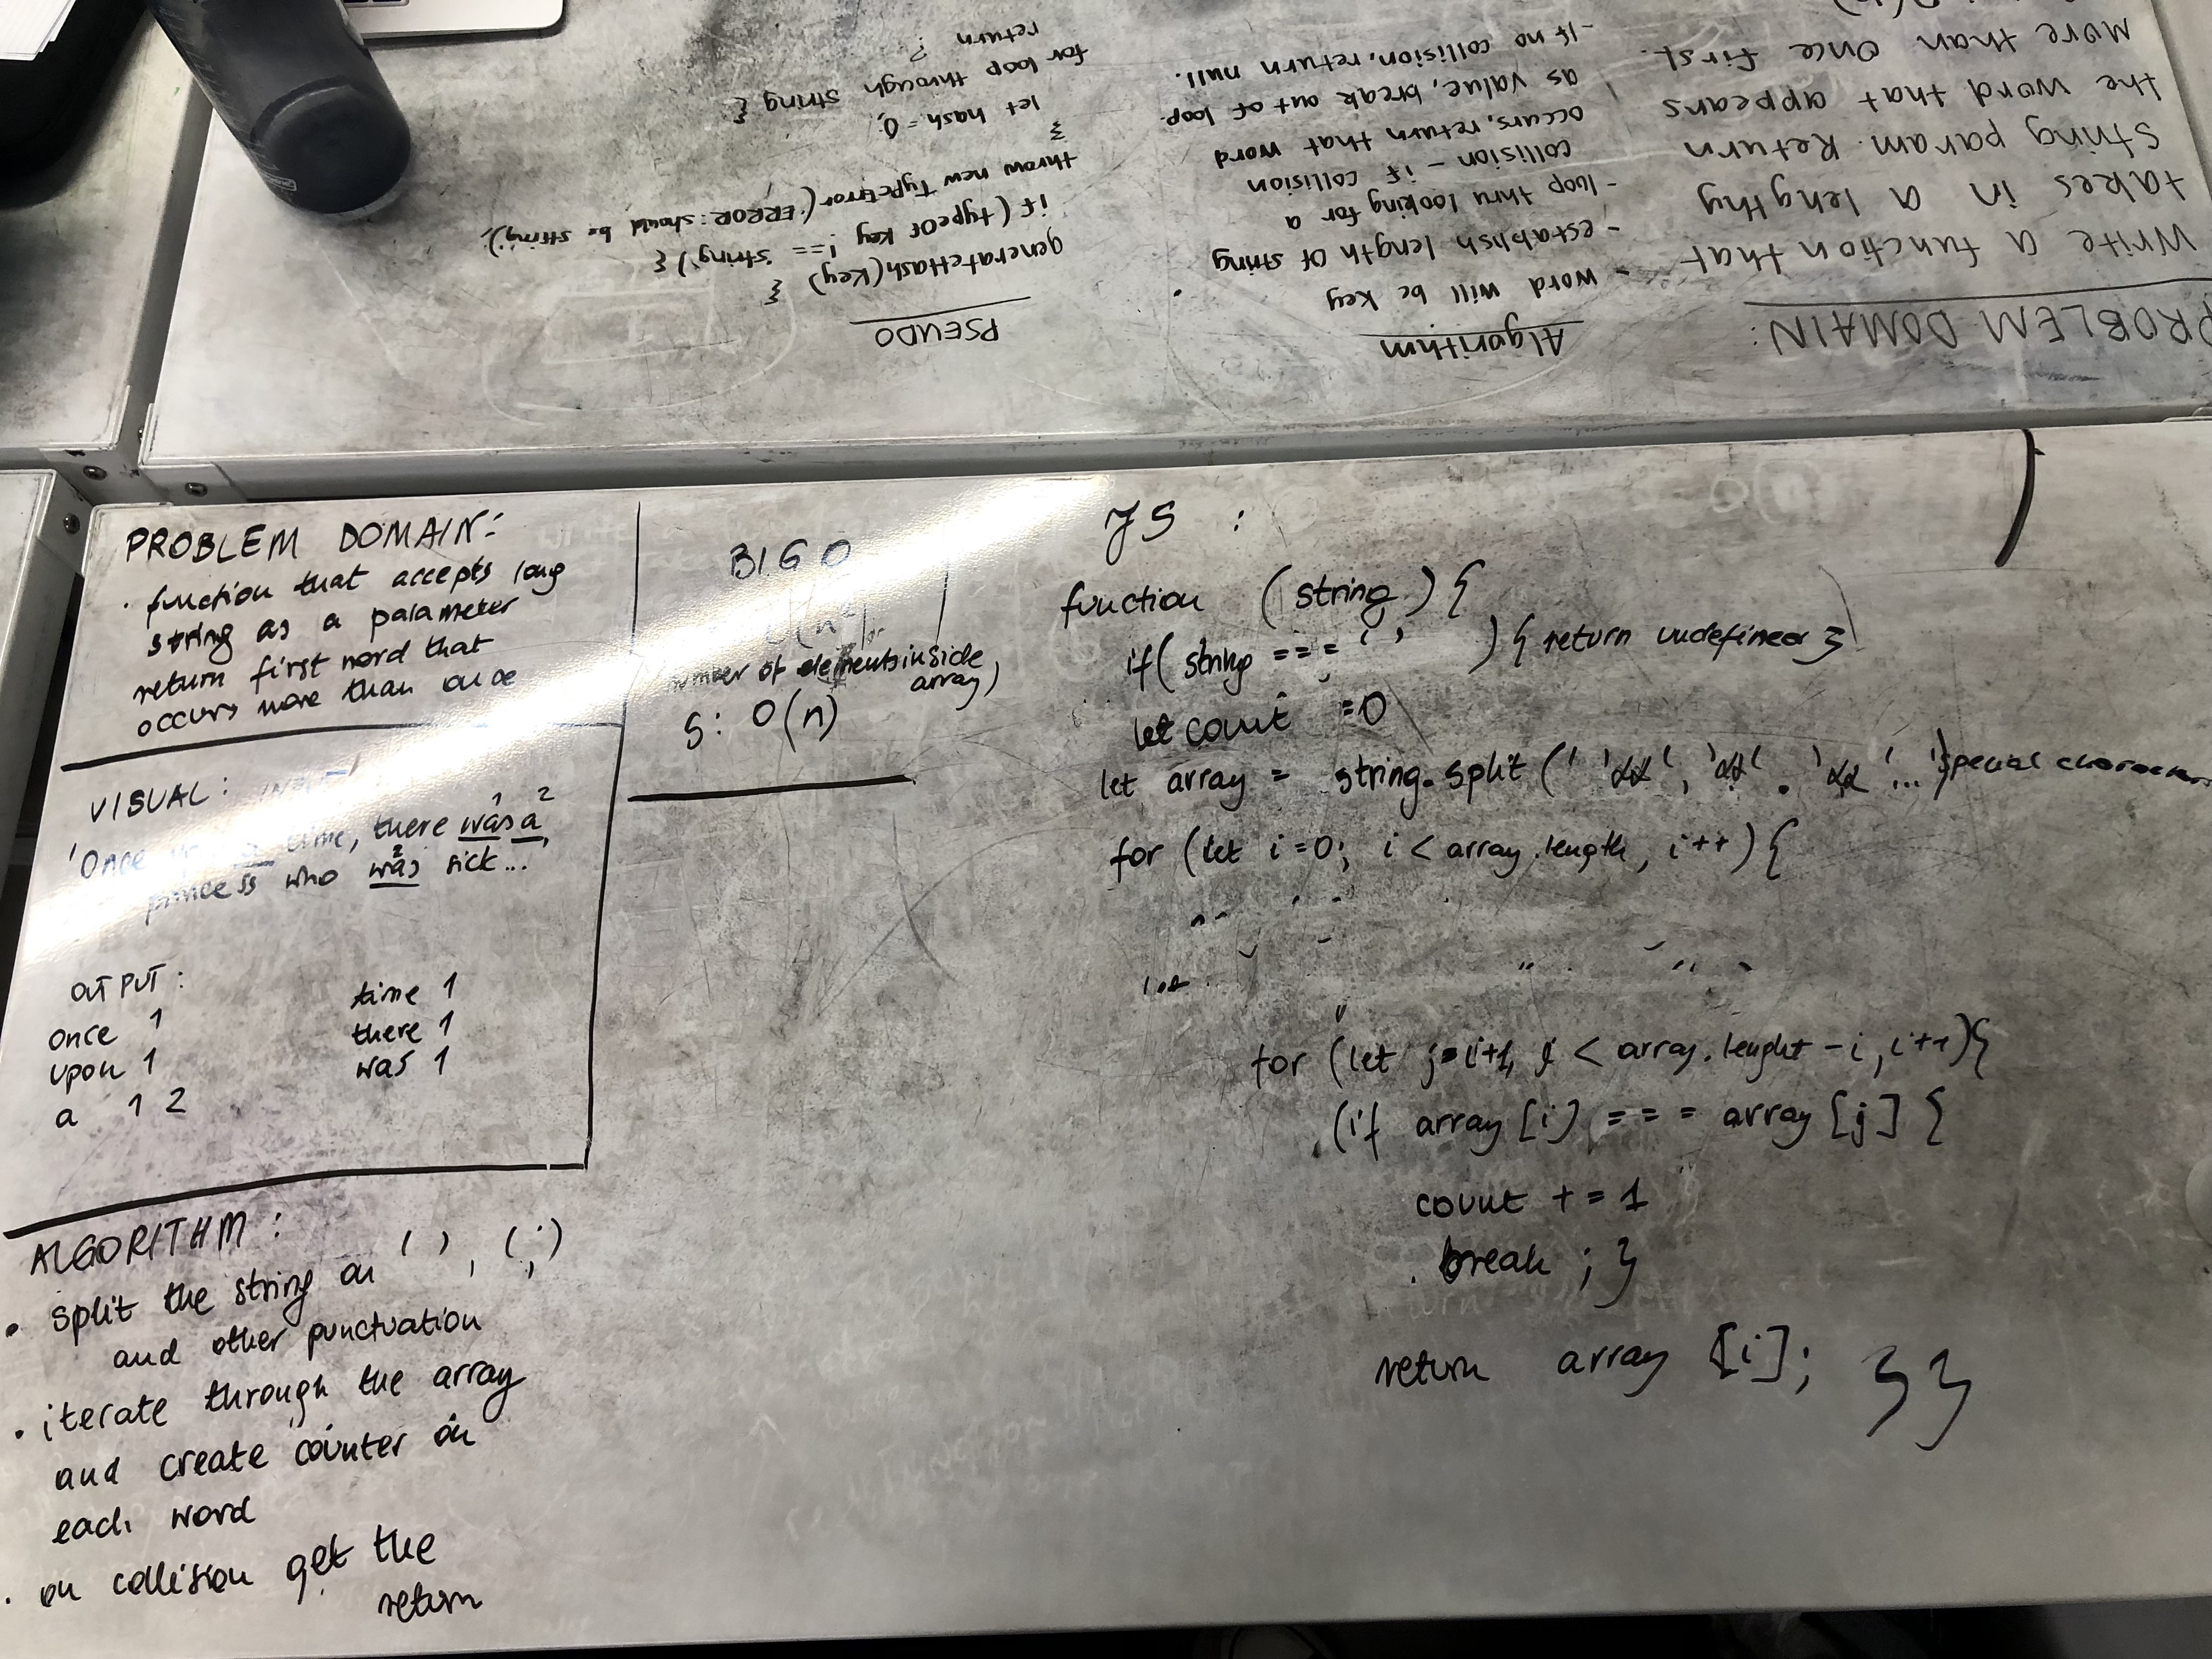 PROBLEM DOMAIN:
Write a function that
takes in a lengthy
string param. Return
the word that appears
more than once first.
Algorithm
- word will be key
- establish length of string
- loop thru looking for a
collision - if collision
occurs, return that word
as value, break out of loop.
- If no collision, return null.
PSEUDO
generateHash(key) {
if (typeOf key !== 'string') {
throw new TypeError('ERROR: should be string');
}
let hash = 0;
for loop through string {
return ?
PROBLEM DOMAIN:
. function that accepts long
string as a parameter
return first word that
occurs more than once
VISUAL:
'Once time, there was a
1 2
princess who was sick...'
2
OUTPUT:
once 1
upon 1
a 1 2
time 1
there 1
was 1
ALGORITHM:
• split the string on ' ', ';'
and other punctuation
• iterate through the array
and create counter on
each word
. on collision get the
return
BIG O
O(n²)
number of elements inside
array)
S: O(n)
JS :
function (string) {
if( string === ' ' ) { return undefined }
let count = 0
let array = string.split(' ' special characters
for (let i=0; i < array.length, i++) {
for (let j=i+1, j < array.lenght - i, i++){
(if array [i] === array [j] {
count += 1
break ; }
return array [i]; }}